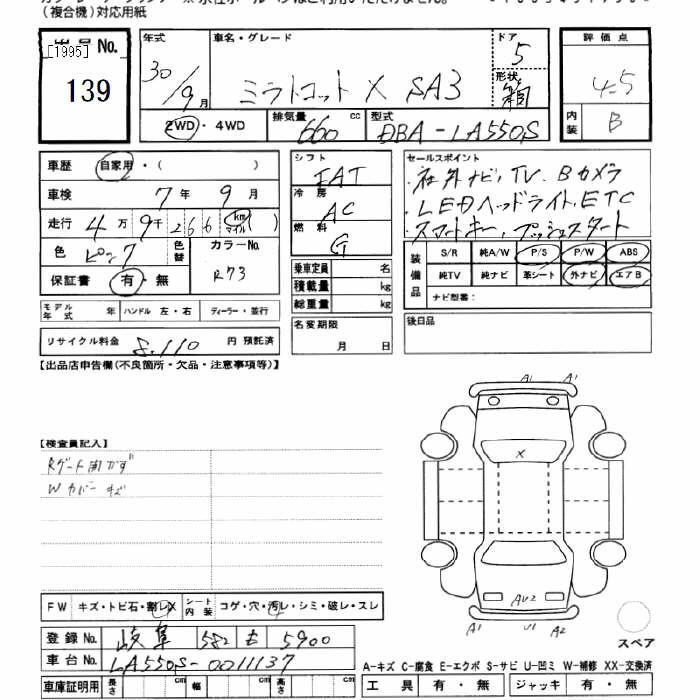 （複合機）対応用紙
出品No.
[1995]
139
年式 30/9月
車名・グレード ミラトコット X SA3
ドア 5
形状 箱
評価点 4.5
内装 B
2WD・4WD
排気量 660 cc
型式 DBA-LA550S
車歴 自家用・( )
車検 7年 9月
走行 4万9千266 km マイル
色 ピンク 色替
カラーNo. R73
保証書 有・無
モデル年式 年 ハンドル 左・右 ディーラー・並行
リサイクル料金 8.110 円 預託済
シフト FAT
冷房 AC
燃料 G
乗車定員 名
積載量 kg
総重量 kg
名変期限 月 日
セールスポイント
・社外ナビ,TV.Bカメラ
・LEDヘッドライト,ETC
・スマートキー,プッシュスタート
装備品 S/R 純A/W P/S P/W ABS
純TV 純ナビ 革シート 外ナビ エアB
ナビ型番：
後日品
【出品店申告欄(不良箇所・欠品・注意事項等)】
【検査員記入】
Rゲート内かず
Wカバー キズ
A1 A1
X
AU2
A1 U1 A2
スペア
FW キズ・トビ石・割レX シート内装 コゲ・穴・汚レ・シミ・破レ・スレ
登録No. 岐阜 582 も 5900
車台No. LA550S-0011137
車庫証明用 長さ cm 幅 cm 高さ cm
A-キズ C-腐食 E-エクボ S-サビ U-凹ミ W-補修 XX-交換済
工具 有・無 ジャッキ 有・無